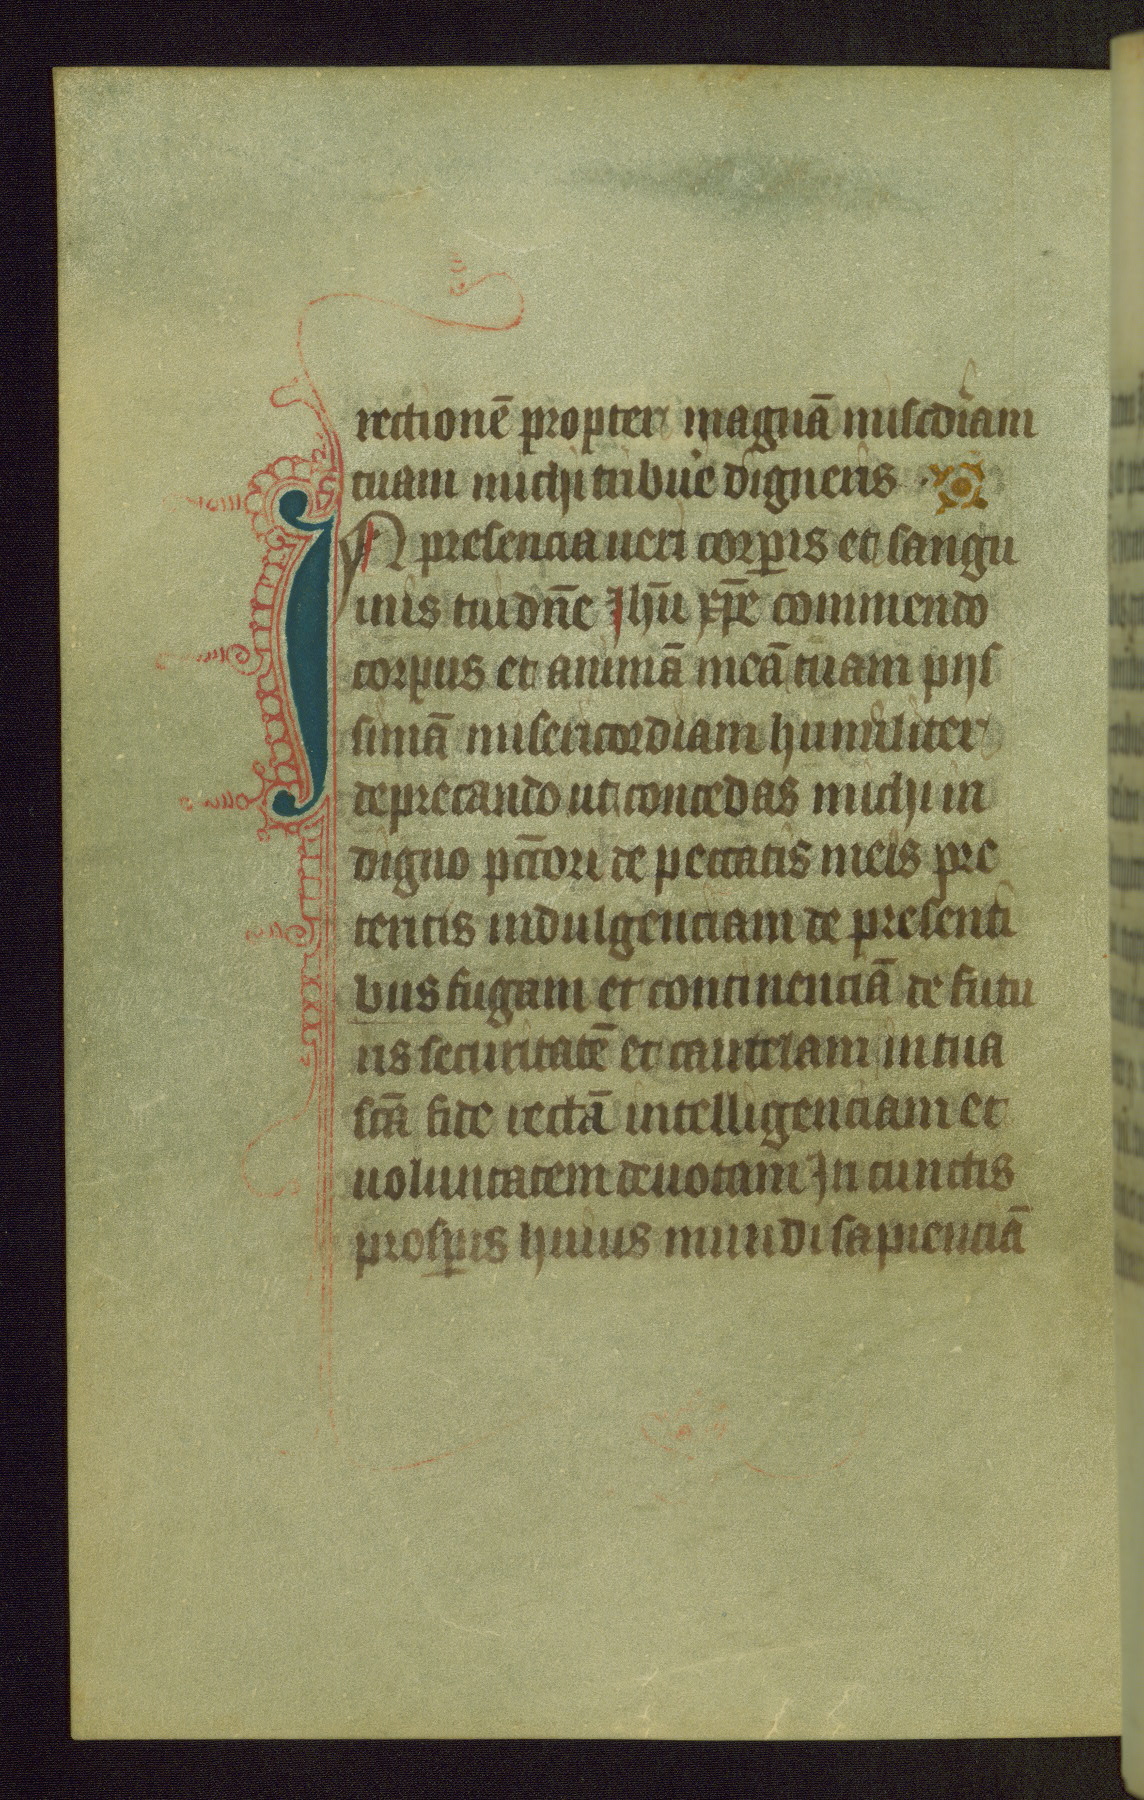 rectionē propter magnā miscdiam
tuam michi tribue digneris
IN presencia ueri corpis et sangu
inis tui dn̄e Jhū xp̄e commendo
corpus et animā meā tuam pijs
simā misericordiam humiliter
deprecando ut concedas michi in
digno pctori de peccatis meis pre
teritis indulgenciam de presenti
bus fugam et continenciā de futu
ris securitatē et cautelam in tua
sctā fide rectā intelligenciam et
uoluntatem deuotam In cunctis
prosp̱is huius mundi sapienciā